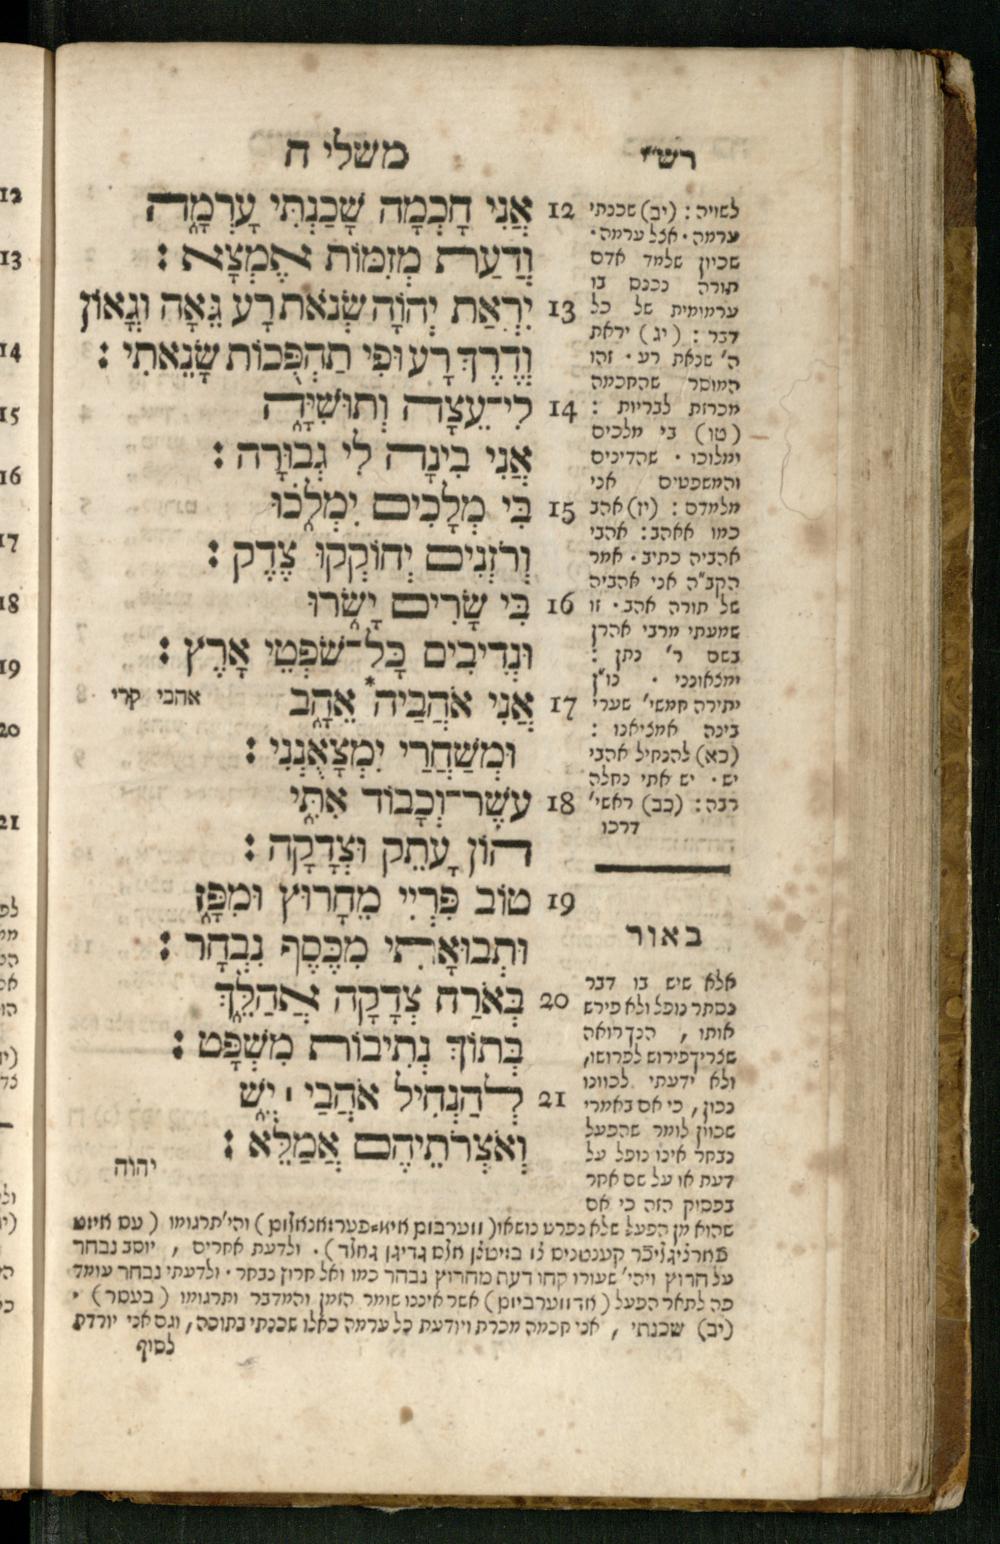 משלי ח
רש״י
12 אֲנִי חָכְמָה שָׁכַנְתִּי עָרְמָ֑ה
וְדַעַת מְזִמּוֹת אֶמְצָא :
13 יִרְאַת יְהוָֹה שְׂנֹאת רָע גֵּאָה וְגָאוֹן
וְדֶרֶךְ רָע וּפִי תַהְפֻּכוֹת שָׂנֵאתִי :
14 לִי־עֵצָה וְתוּשִׁיָּ֑ה
אֲנִי בִינָה לִי גְבוּרָה :
15 בִּי מְלָכִים יִמְלֹ֑כוּ
וְרֹזְנִים יְחוֹקְקוּ צֶדֶק :
16 בִּי שָׂרִים יָשֹׂ֑רוּ
וּנְדִיבִים כָּל־שֹׁפְטֵי אָרֶץ :
17 אֲנִי אֹהֲבַיה* אֵהָ֑ב
אהבי קרי
וּמְשַׁחֲרַי יִמְצָאֻנְנִי :
18 עֹשֶׁר־וְכָבוֹד אִתִּ֑י
הוֹן עָתֵק וּצְדָקָה :
19 טוֹב פִּרְיִי מֵחָרוּץ וּמִפָּ֑ז
וּתְבוּאָתִי מִכֶּסֶף נִבְחָר :
20 בְּאֹרַח צְדָקָה אֲהַלֵּ֑ךְ
בְּתוֹךְ נְתִיבוֹת מִשְׁפָּט :
21 לְהַנְחִיל אֹהֲבַי ׀ יֵ֑שׁ
וְאֹצְרֹתֵיהֶם אֲמַלֵּא :
יהוה
לשויה : (יב) שכנתי
ערמה · אצל ערמה ·
שכיון שלמד אדם
תורה נכנס בו
ערמומית של כל
דבר : (יג) יראת
ה' שנאת רע · זהו
המוסר שהחכמה
מכרזת לבריות :
(טו) בי מלכים
ימלוכו · שהדינים
והמשפטים אני
מלמדם : (יז) אהב
כמו אאהב : אהבי
אהביה כתיב · אמר
הקב"ה אני אהביה
של תורה אהב · זו
שמעתי מרבי אהרן
בשם ר' נתן :
ימצאונני · נו"ן
יתירה חמשי' שערי
בינה אמציאנו :
(כא) להנחיל אהבי
יש · יש אתי נחלה
רבה : (כב) ראשי'
דרכו
באור
אלא שיש בו דבר
נסתר נופל ולא פירש
אותו , הנך רואה
שצריך פירוש לפרושו,
ולא ידעתי לכוונו
נכון , כי אם באמרי
שכוון לומר שהפעל
נבחר אינו נופל על
דעת או על שם אחר
בפסוק הזה כי אם
שהוא מן הפעל שלא נפרט נושאו
על חרוץ ויהי' שעורו קחו דעת מחרוץ נבחר כמו ואל חרוץ נבחר · ולדעתי נבחר עומד
פה לתאר הפעל (אדווערביום) אשר איננו שומר הזמן והמדבר ותרגומו (בעסר) ·
(יב) שכנתי , אני חכמה מכרת ויודעת כל ערמה כאלו שכנתי בתוכה, וגם אני יורדת
לסוף